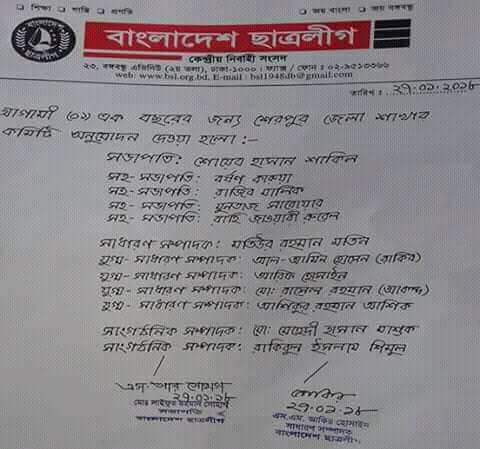 ❑ শিক্ষা ❑ শান্তি ❑ প্রগতি ❑ জয় বাংলা ❑ জয় বঙ্গবন্ধু
বাংলাদেশ ছাত্রলীগ
বাংলাদেশ ছাত্রলীগ
কেন্দ্রীয় নির্বাহী সংসদ
২৩, বঙ্গবন্ধু এভিনিউ (২য় তলা), ঢাকা-১০০০। ফ্যাক্স / ফোন : ০২-৯৫১০৩৬৬
web: www.bsl.org.bd E-mail : bsl1948db@gmail.com
তারিখ :
আগামী (০১) এক বছরের জন্য শেরপুর জেলা শাখার
কমিটি অনুমোদন দেওয়া হলো :-
সভাপতি: শোয়েব হাসান শাকিল
সহ- সভাপতি: বর্ষণ কারুয়া
সহ- সভাপতি: রাজিব মালিক
সহ- সভাপতি: মুনতাজ সারোয়ার
সহ- সভাপতি: রাহি জওয়ারী রুবেল
সাধারণ সম্পাদক: মতিউর রহমান মতিন
যুগ্ম- সাধারণ সম্পাদক: আল-আমিন হোসেন (রাকিব)
যুগ্ম- সাধারণ সম্পাদক: আরিফ হোসাইন
যুগ্ম- সাধারণ সম্পাদক: মো: রাসেল রহমান (আকন্দ)
যুগ্ম- সাধারণ সম্পাদক: আশিকুর রহমান আশিক
সাংগঠনিক সম্পাদক: মো: মেহেদী হাসান মাশুক
সাংগঠনিক সম্পাদক: রাকিবুল ইসলাম শিমুল
এস.আর সোহাগ
২৭.০১.১৮
মোঃ সাইফুর রহমান সোহাগ
সভাপতি
বাংলাদেশ ছাত্রলীগ
জাকির
২৭.০১.১৮
এস.এম. জাকির হোসাইন
সাধারণ সম্পাদক
বাংলাদেশ ছাত্রলীগ